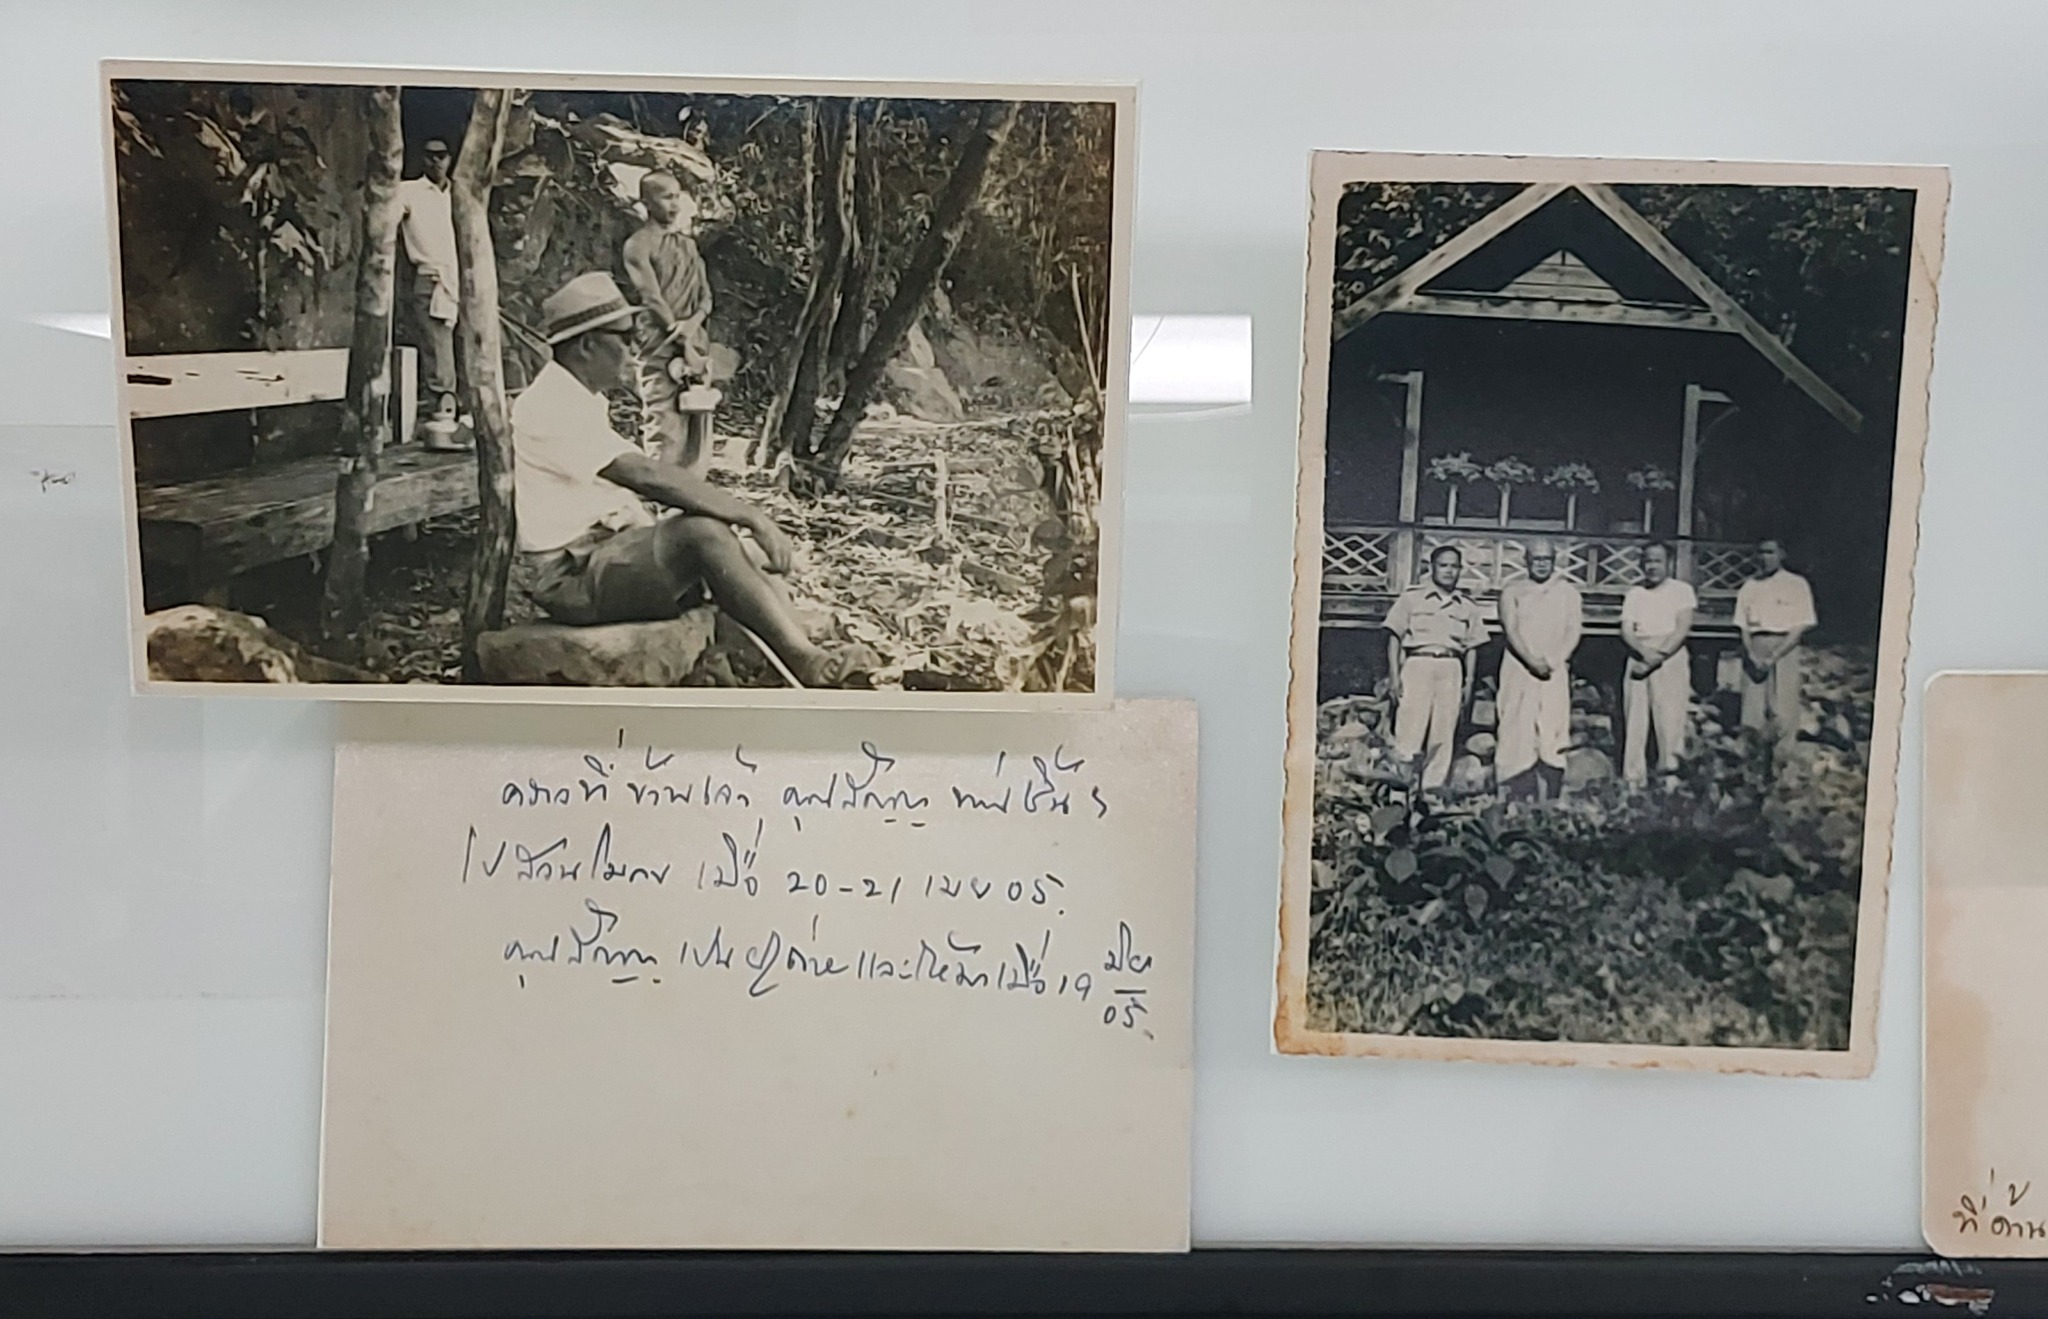 คราวที่ข้าพเจ้า คุณสัญญา ท่านชื้น ๆ
ไปสวนโมกข์ เมื่อ 20-21 เมย 05.
คุณสัญญา เป็นผู้ถ่ายและให้มาเมื่อ 19 มิย 05.
ที่ด้าน